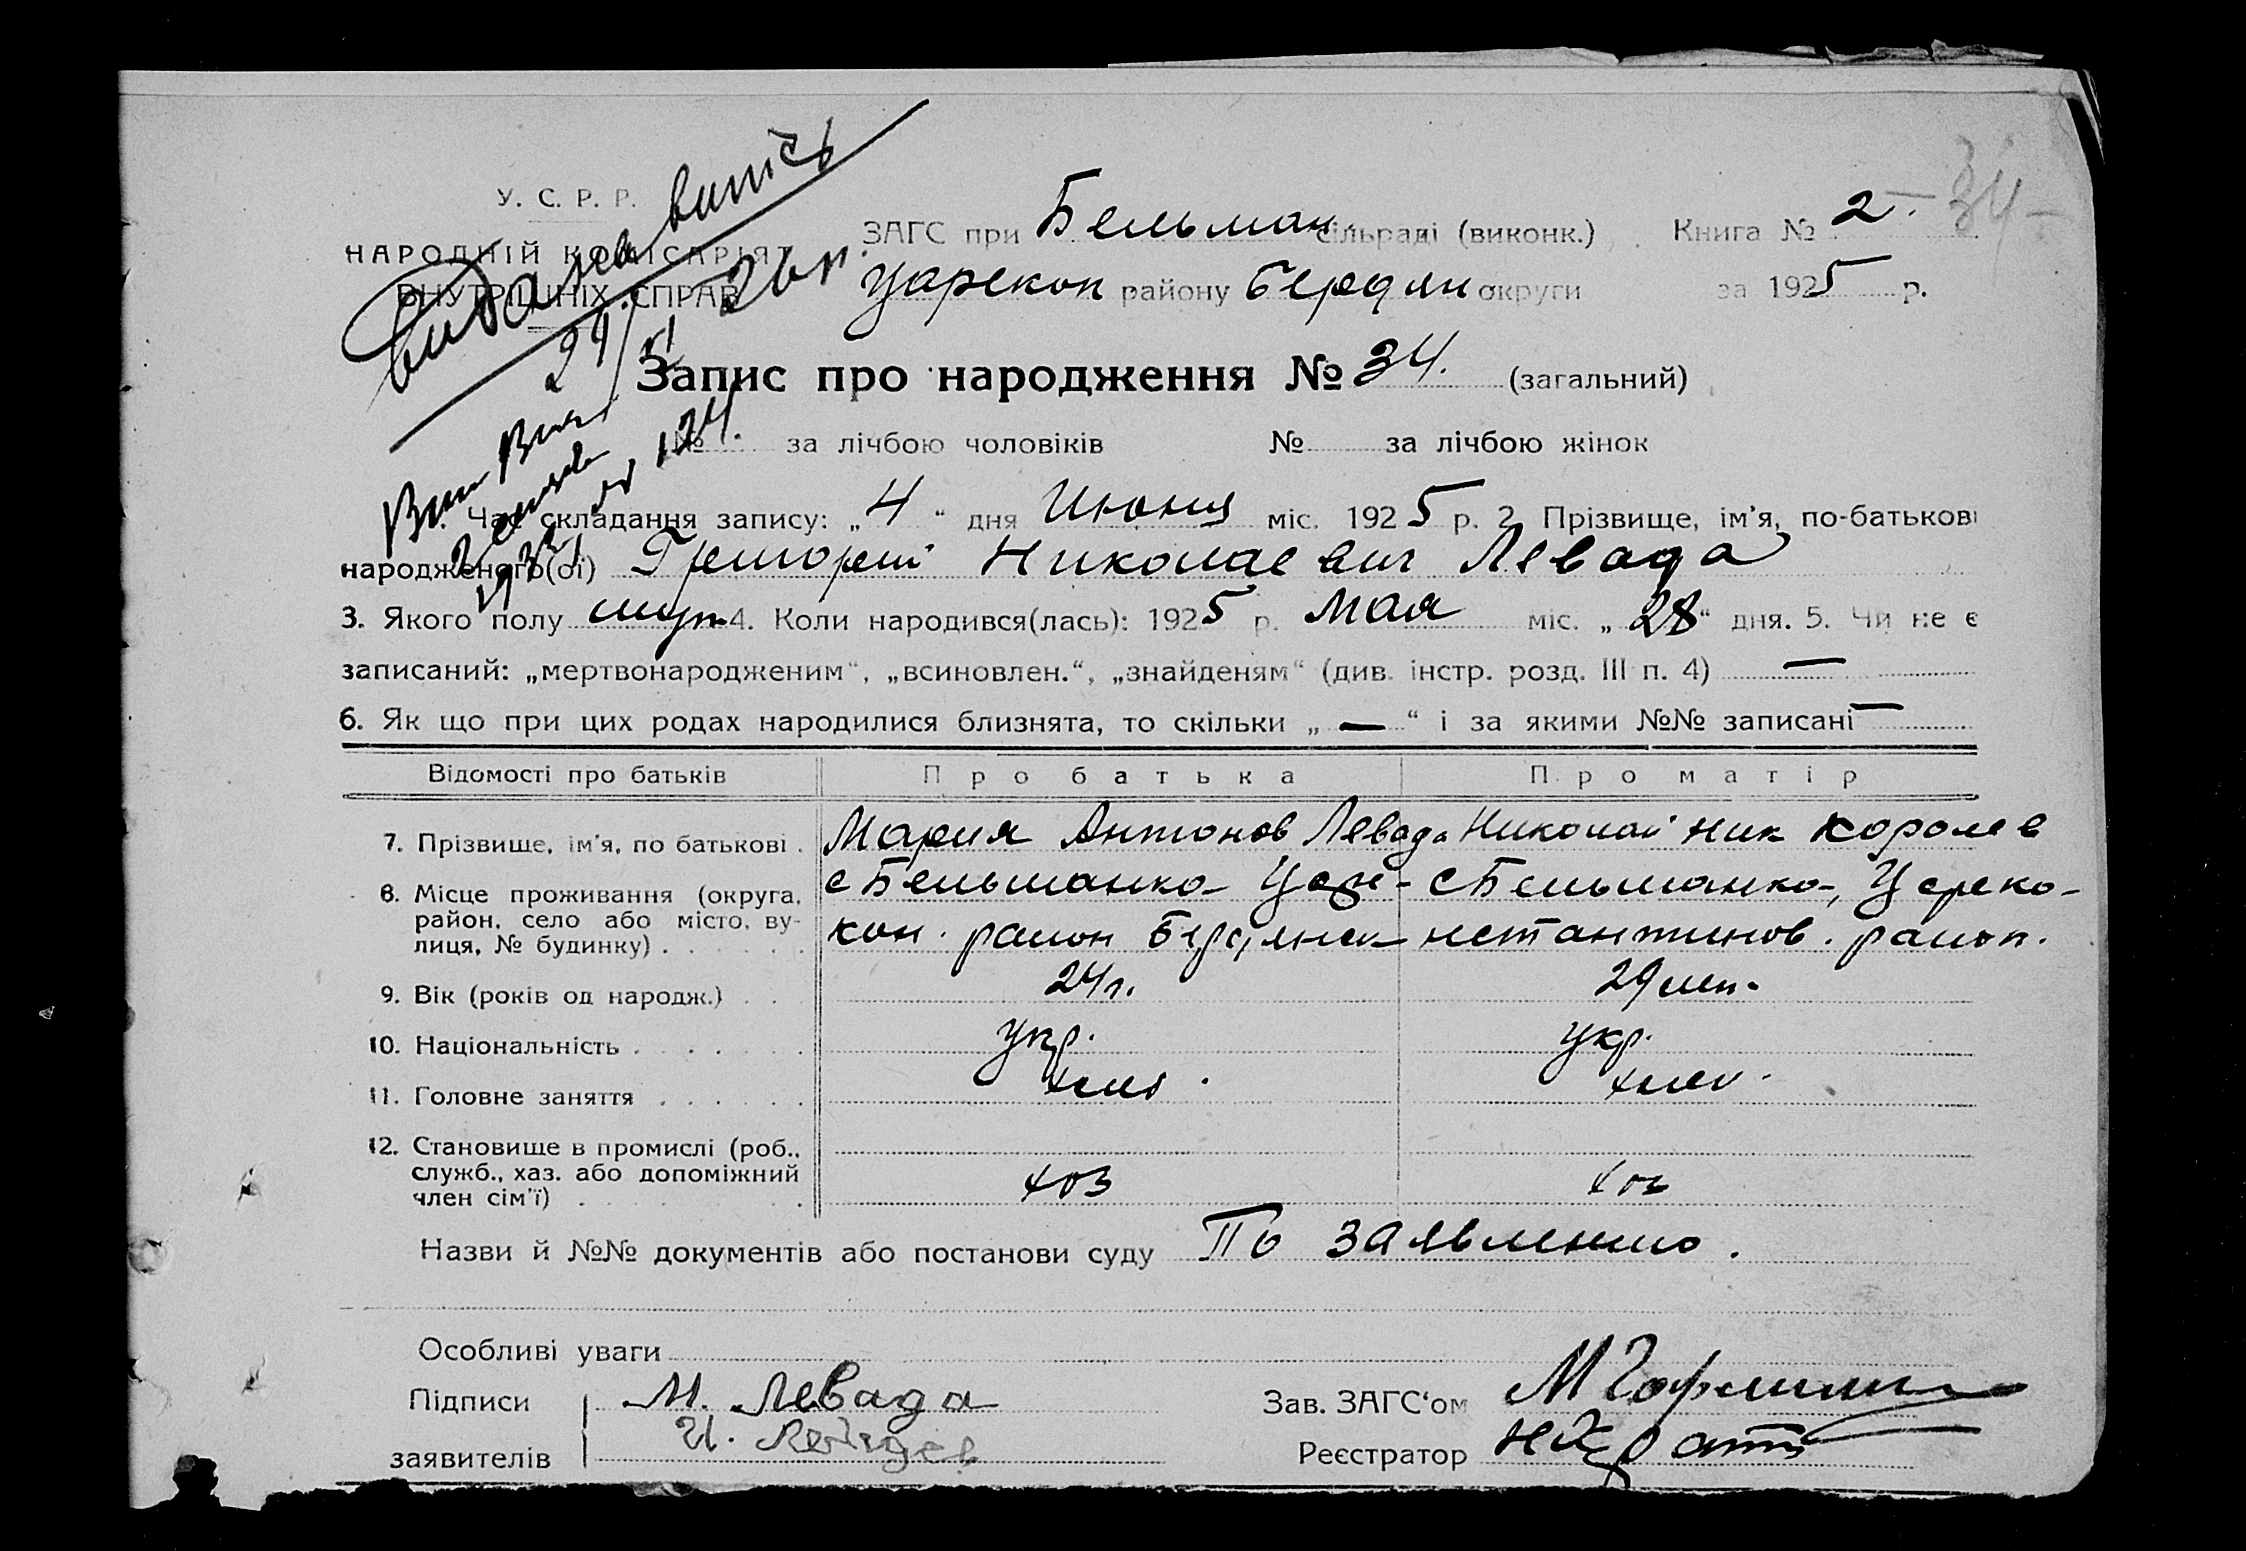 видана випісь
24/VI 26 р.
34
У. С. Р. Р.
НАРОДНІЙ КОМІСАРІЯТ
ВНУТРІШНІХ СПРАВ
ЗАГС при Бельман сільраді (виконк.) Книга № 2.
Царекон району Бердян округи за 1925 р.
Запис про народження № 34. (загальний)
№ за лічбою чоловіків № за лічбою жінок
1. Час складання запису: „4“ дня Июня міс. 1925 р. 2. Прізвище, ім'я, по-батькові
народженого(ої) Григорий Николаевич Левада
3. Якого полу муж 4. Коли народився(лась): 1925 р. Мая міс. „28“ дня. 5. Чи не є
записаний: „мертвонародженим“, „всиновлен.“, „знайденям“ (див. інстр. розд. III п. 4) —
6. Як що при цих родах народилися близнята, то скільки „—“ і за якими №№ записані —
Відомості про батьків Про батька Про матір
7. Прізвище, ім'я, по батькові . Мария Антонов Левада Николай Ник Королев
8. Місце проживання (округа, с Бельманка Царе- с Бельманка, Цареко-
район, село або місто, ву-
лиця, № будинку) . . . . . кон. район Бердянск нстантинов. район.
9. Вік (років од народж.) . . 24 г. 29 лет.
10. Національність . . . . . . укр. укр.
11. Головне заняття . . . . . . хлеб. хлеб.
12. Становище в промислі (роб.,
служб., хаз. або допоміжний
член сім'ї) . . . хоз хоз
Назви й №№ документів або постанови суду По заявлению.
Особливі уваги
Підписи М. Левада Зав. ЗАГС'ом
заявителів Реєстратор